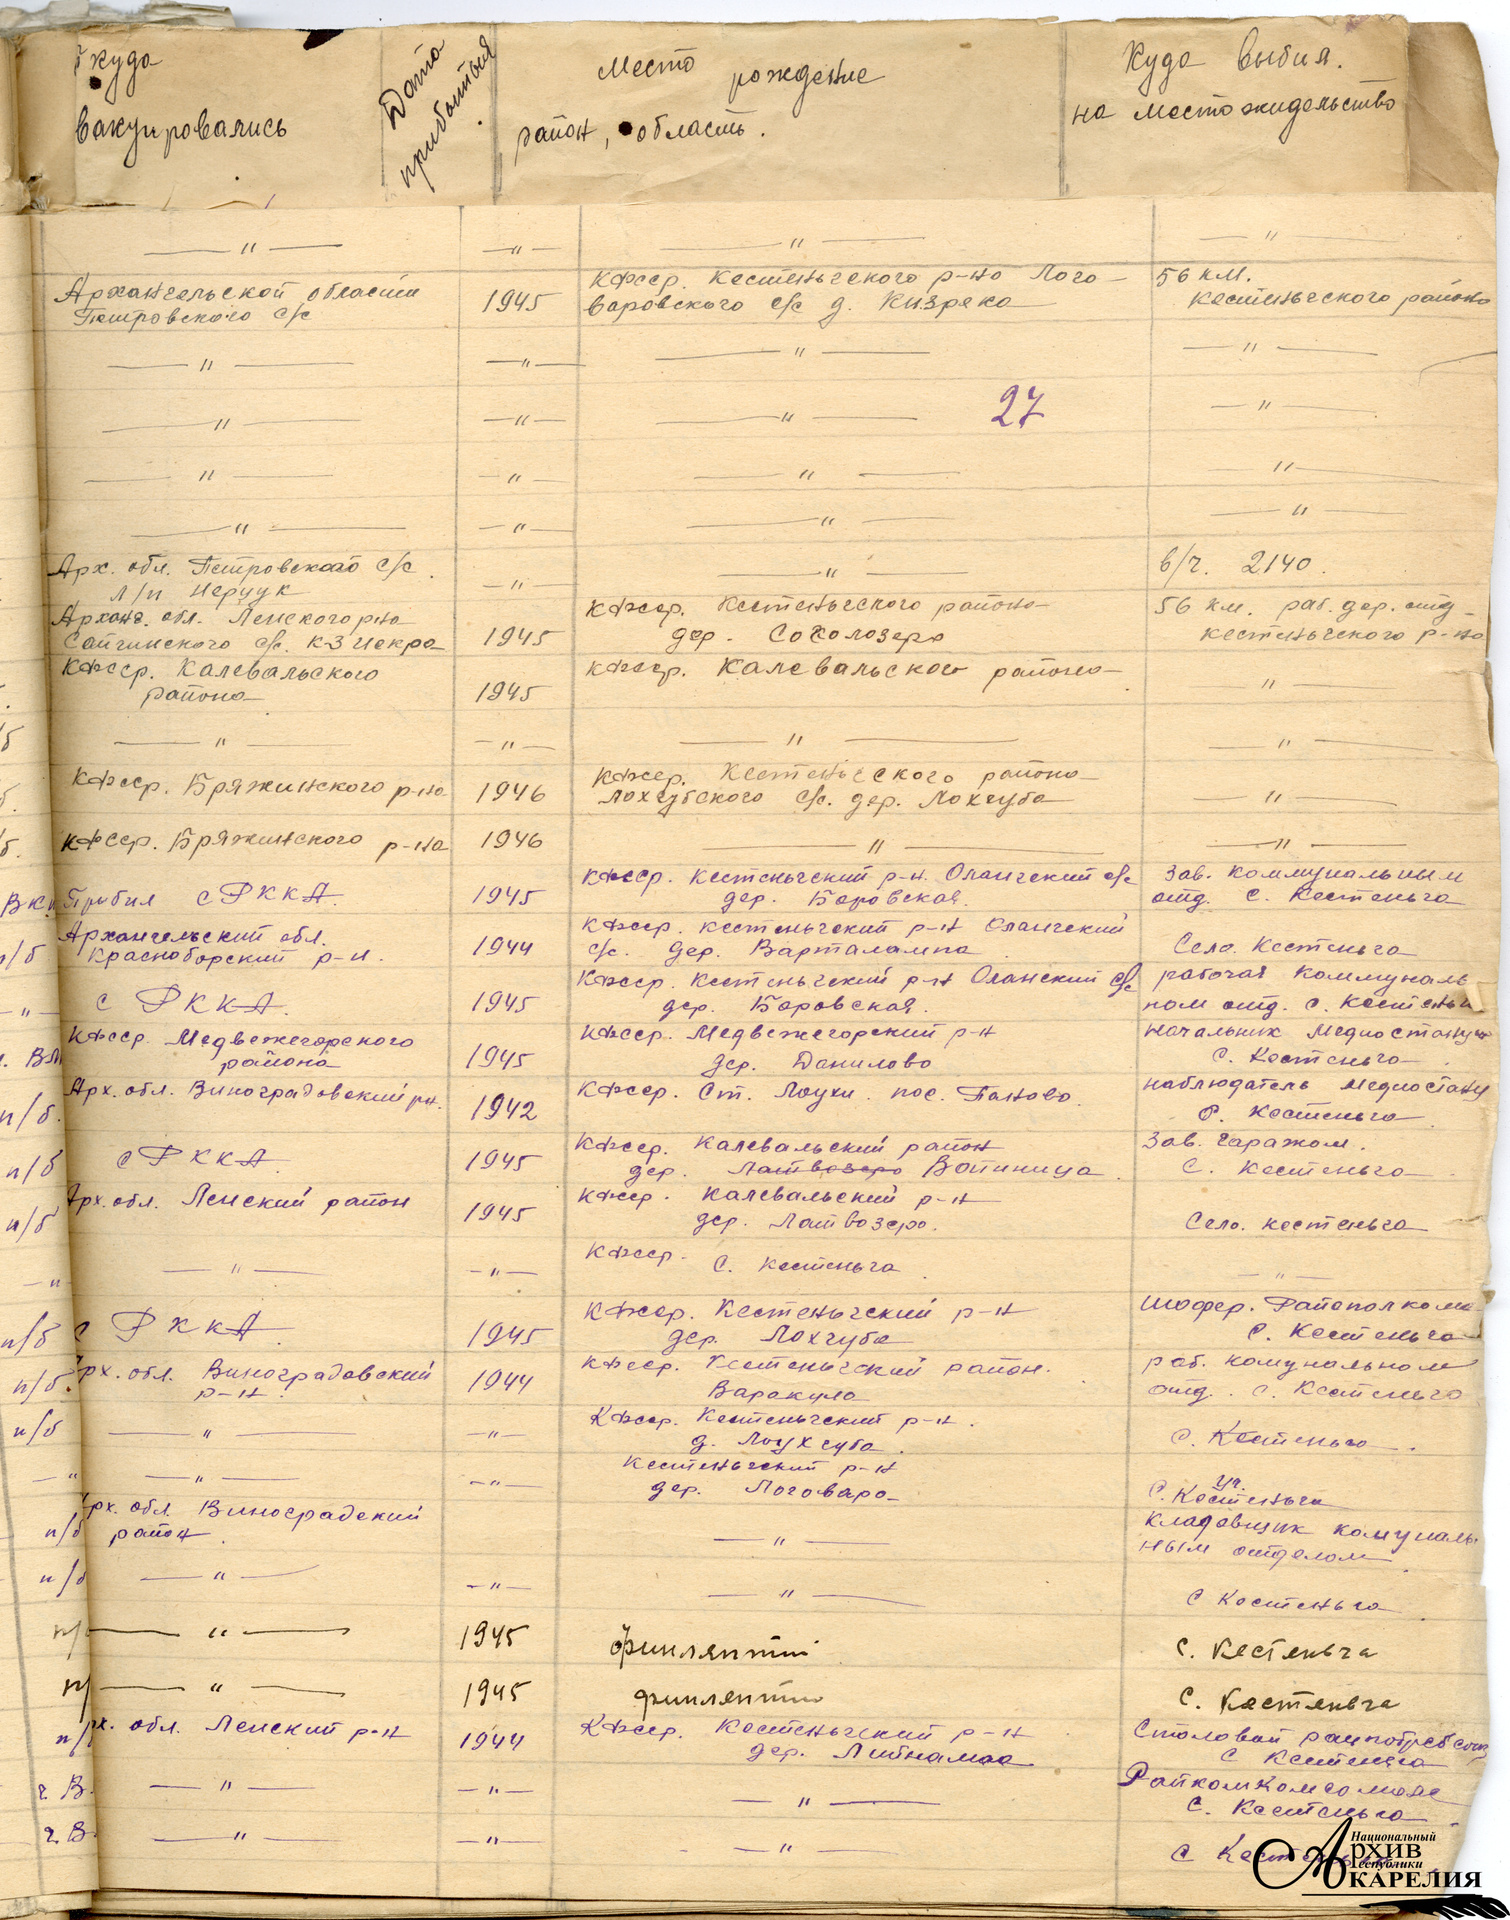 куда
вакуировались
Дата
прибытия
Место рождение
район, область.
Куда выбыл.
на место жидельство
— " — — " — — " — — " —
Архангельской области
Петровского с/с
1945
КФССР. Кестеньгского р-на Лого-
варовского с/с д. Кизрека
56 км.
Кестеньгского района
— " — — " — — " — — " —
27
— " — — " — — " — — " —
— " — — " — — " — — " —
— " — — " — — " — — " —
Арх. обл. Петровского с/с
л/п Нерчук
— " — — " —
в/ч. 2140.
Арханг. обл. Ленского р-на
Сойгинского с/с. К-З Искра
1945
КФССР. Кестеньгского района
дер. Соколозеро
56 км. раб. дер. отд.
Кестеньгского р-на
КФССР. Калевальского
района
1945
КФССР. Калевальского района
— " —
— " — — " — — " — — " —
КФССР. Бряжинского р-на 1946
КФССР. Кестеньгского района
Лохгубского с/с. дер. Лохгуба
— " —
КФССР. Бряжинского р-на 1946 — " — — " —
Прибыл с РККА. 1945
КФССР. Кестеньгский р-н. Олангский с/с
дер. Боровская.
Зав. Коммунальным
отд. с. Кестеньга
п/б
Архангельский обл.
Красноборский р-н.
1944
КФССР. Кестеньгский р-н Олангский
с/с. дер. Варталампа
Село. Кестеньга
— " — с РККА. 1945
КФССР. Кестеньгский р-н Оланский с/с
дер. Боровская.
рабочая Коммуналь
ном отд. с. Кестеньг
КФССР. Медвежегорского
района
1945
КФССР. Медвежегорский р-н
дер. Данилово
начальник
С. Кестеньга
п/б.
Арх. обл. Виноградовский р-н.
1942
КФССР. Ст. Лоухи. пос. Паново.
наблюдатель
С. Кестеньга
п/б с РККА 1945
КФССР. Калевальский район
дер. Латвозеро Вопиница
Зав. гаражом.
С. Кестеньга
п/б
Арх. обл. Ленский район
1945
КФССР. Калевальский р-н
дер. Латвозеро.
Село. Кестеньга
— " — — " — — " —
КФССР. С. Кестеньга
— " —
п/б с РККА 1945
КФССР. Кестеньгский р-н
дер. Лохгуба
шофер. Райполкома
С. Кестеньга
п/б.
Арх. обл. Виноградовский
р-н.
1944
КФССР. Кестеньгский район.
Варакула
раб. комунальном
отд. с. Кестеньга
п/б — " — — " —
КФССР. Кестеньгский р-н.
д. Лоухгуба.
С. Кестеньга.
— " — — " — — " —
Кестеньгский р-н
дер. Логоваро
С. Кестеньга
п/б
Арх. обл. Виноградский
район
— " —
кладовщик комуналь
ным отделом
п/б — " — — " — — " —
С Кестеньга
п/ — " — 1945 финляптии С. Кестеньга
п/ — " — 1945 финляптии С. Кестеньга
п/
рх. обл. Ленский р-н
1944
КФССР. Кестеньгский р-н
дер. Лийнамаа
Столовой райпотребсоюз
С Кестеньга
г. В. — " — — " — — " —
Райком Комсомола
С. Кестеньга
г. В. — " — — " — — " —
С Кестеньга
Национальный
Архив
Республики
Карелия